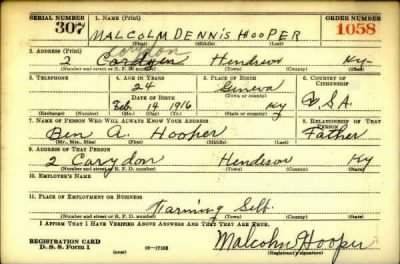 SERIAL NUMBER 1. NAME (Print) ORDER NUMBER
307 MALCOLM DENNIS HOOPER 1058
(First) (Middle) (Last)
2. ADDRESS (Print) Corydon
2 Cordyen Henderson Ky-
(Number and street or R. F. D. number) (Town) (County) (State)
3. TELEPHONE 4. AGE IN YEARS 5. PLACE OF BIRTH 6. COUNTRY OF CITIZENSHIP
24 Geneva
DATE OF BIRTH (Town or county)
Feb. 14 1916 Ky U.S.A.
(Exchange) (Number) (Mo.) (Day) (Yr.) (State or country)
7. NAME OF PERSON WHO WILL ALWAYS KNOW YOUR ADDRESS 8. RELATIONSHIP OF THAT PERSON
Ben A. Hooper Father
(Mr., Mrs., Miss) (First) (Middle) (Last)
9. ADDRESS OF THAT PERSON
2 Corydon Henderson Ky
(Number and street or R. F. D. number) (Town) (County) (State)
10. EMPLOYER'S NAME
11. PLACE OF EMPLOYMENT OR BUSINESS
Farming Self.
(Number and street or R. F. D. number) (Town) (County) (State)
I AFFIRM THAT I HAVE VERIFIED ABOVE ANSWERS AND THAT THEY ARE TRUE.
REGISTRATION CARD
D. S. S. Form 1 (over) 16-17105 Malcolm Hooper
(Registrant's signature)